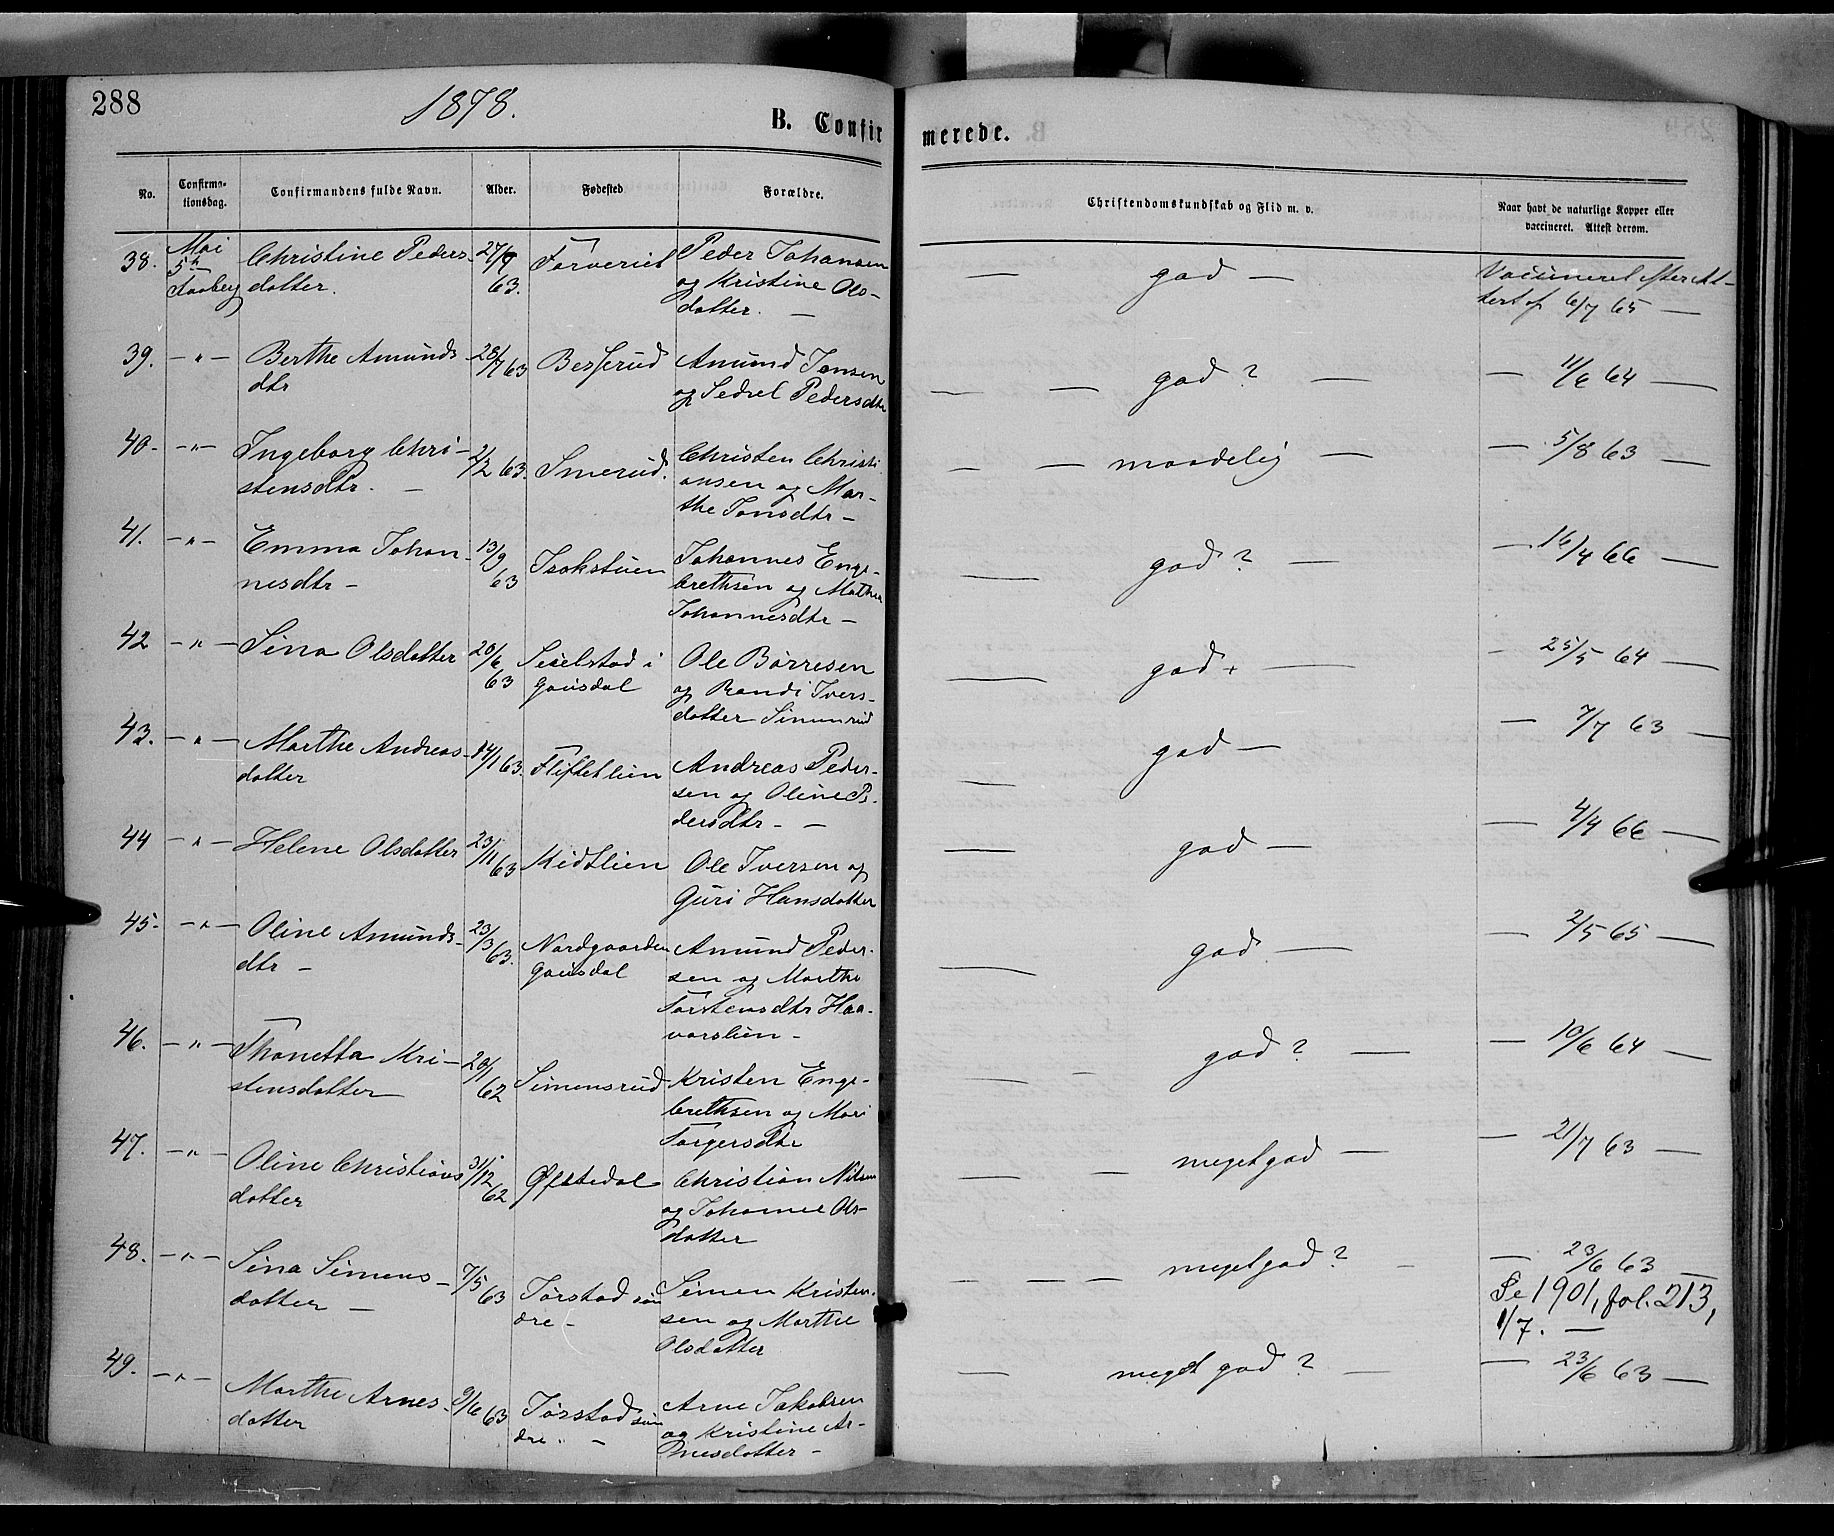 288
1878.
B. Confirmerede.
No.
Confirmationsdag.
Confirmandens fulde Navn.
Alder.
Fødested
Forældre.
Christendomskundskab og Flid m. v.
Naar havt de naturlige Kopper eller
vaccineret. Attest derom.
38. Mai 5te Faaberg Christine Pedersdatter. 27/9 63. Farveriet Peder Johansen og Kristine Olsdatter. — — god — Vaccineret efter Attest af 6/7 65 —
39. —"— Berthe Amundsdtr 28/7 63 Berserud Amund Jensen og Sedsel Pedersdtr — — god? — — 11/6 64 —
40. —"— Ingeborg Christensdtr. — 2/2 63. Smerud. Christen Christiansen og Marthe Jonsdtr — — — maadelig — — 5/8 63 —
41. —"— Emma Johannesdtr — 13/9 63 Isakstuen Johannes Engebrethsen og Mathea Johannesdtr — — god? — — 16/4 66 —
42 —"— Sina Olsdatter 20/6 63 Seielstad i Gausdal Ole Börresen og Randi Iversdatter Simenrud — god. — — 25/5 64 —
43. —"— Marthe Andreasdatter 14/1 63. Fliftetlien Andreas Pedersen og Oline Pedersdtr — — — god — — 7/7 63 —
44 —"— Helene Olsdatter 23/11 63 Midtlien Ole Iversen og Guri Hansdatter — god — — 4/4 66 —
45. —"— Oline Amundsdtr — 23/3 63. Nordgaarden Gausdal Amund Pedersen og Marthe Torstensdtr Haavarslien — — god — — 2/5 65 —
46. —"— Thonetta Kristensdatter 20/1 62 Simensrud Kristen Engebrethsen og Mari Torgersdtr — — god? — — 10/6 64 —
47. —"— Oline Christiansdatter 31/12 62 Öfstedal Christian Nilsen og Johanne Olsdatter — — meget god — — 21/7 63 —
48. —"— Sina Simensdatter — 7/5 63 Jörstad söndre — Simen Kristensen og Marthe Olsdatter — — — meget god? — — 23/6 63 —
Se 1901, fol. 213,
1/7. —
49. —"— Marthe Arnesdatter 9/6 63 Jörstad söndre. — Arne Jakobsen og Kristine Arnesdatter — — meget god? — — 23/6 63 —